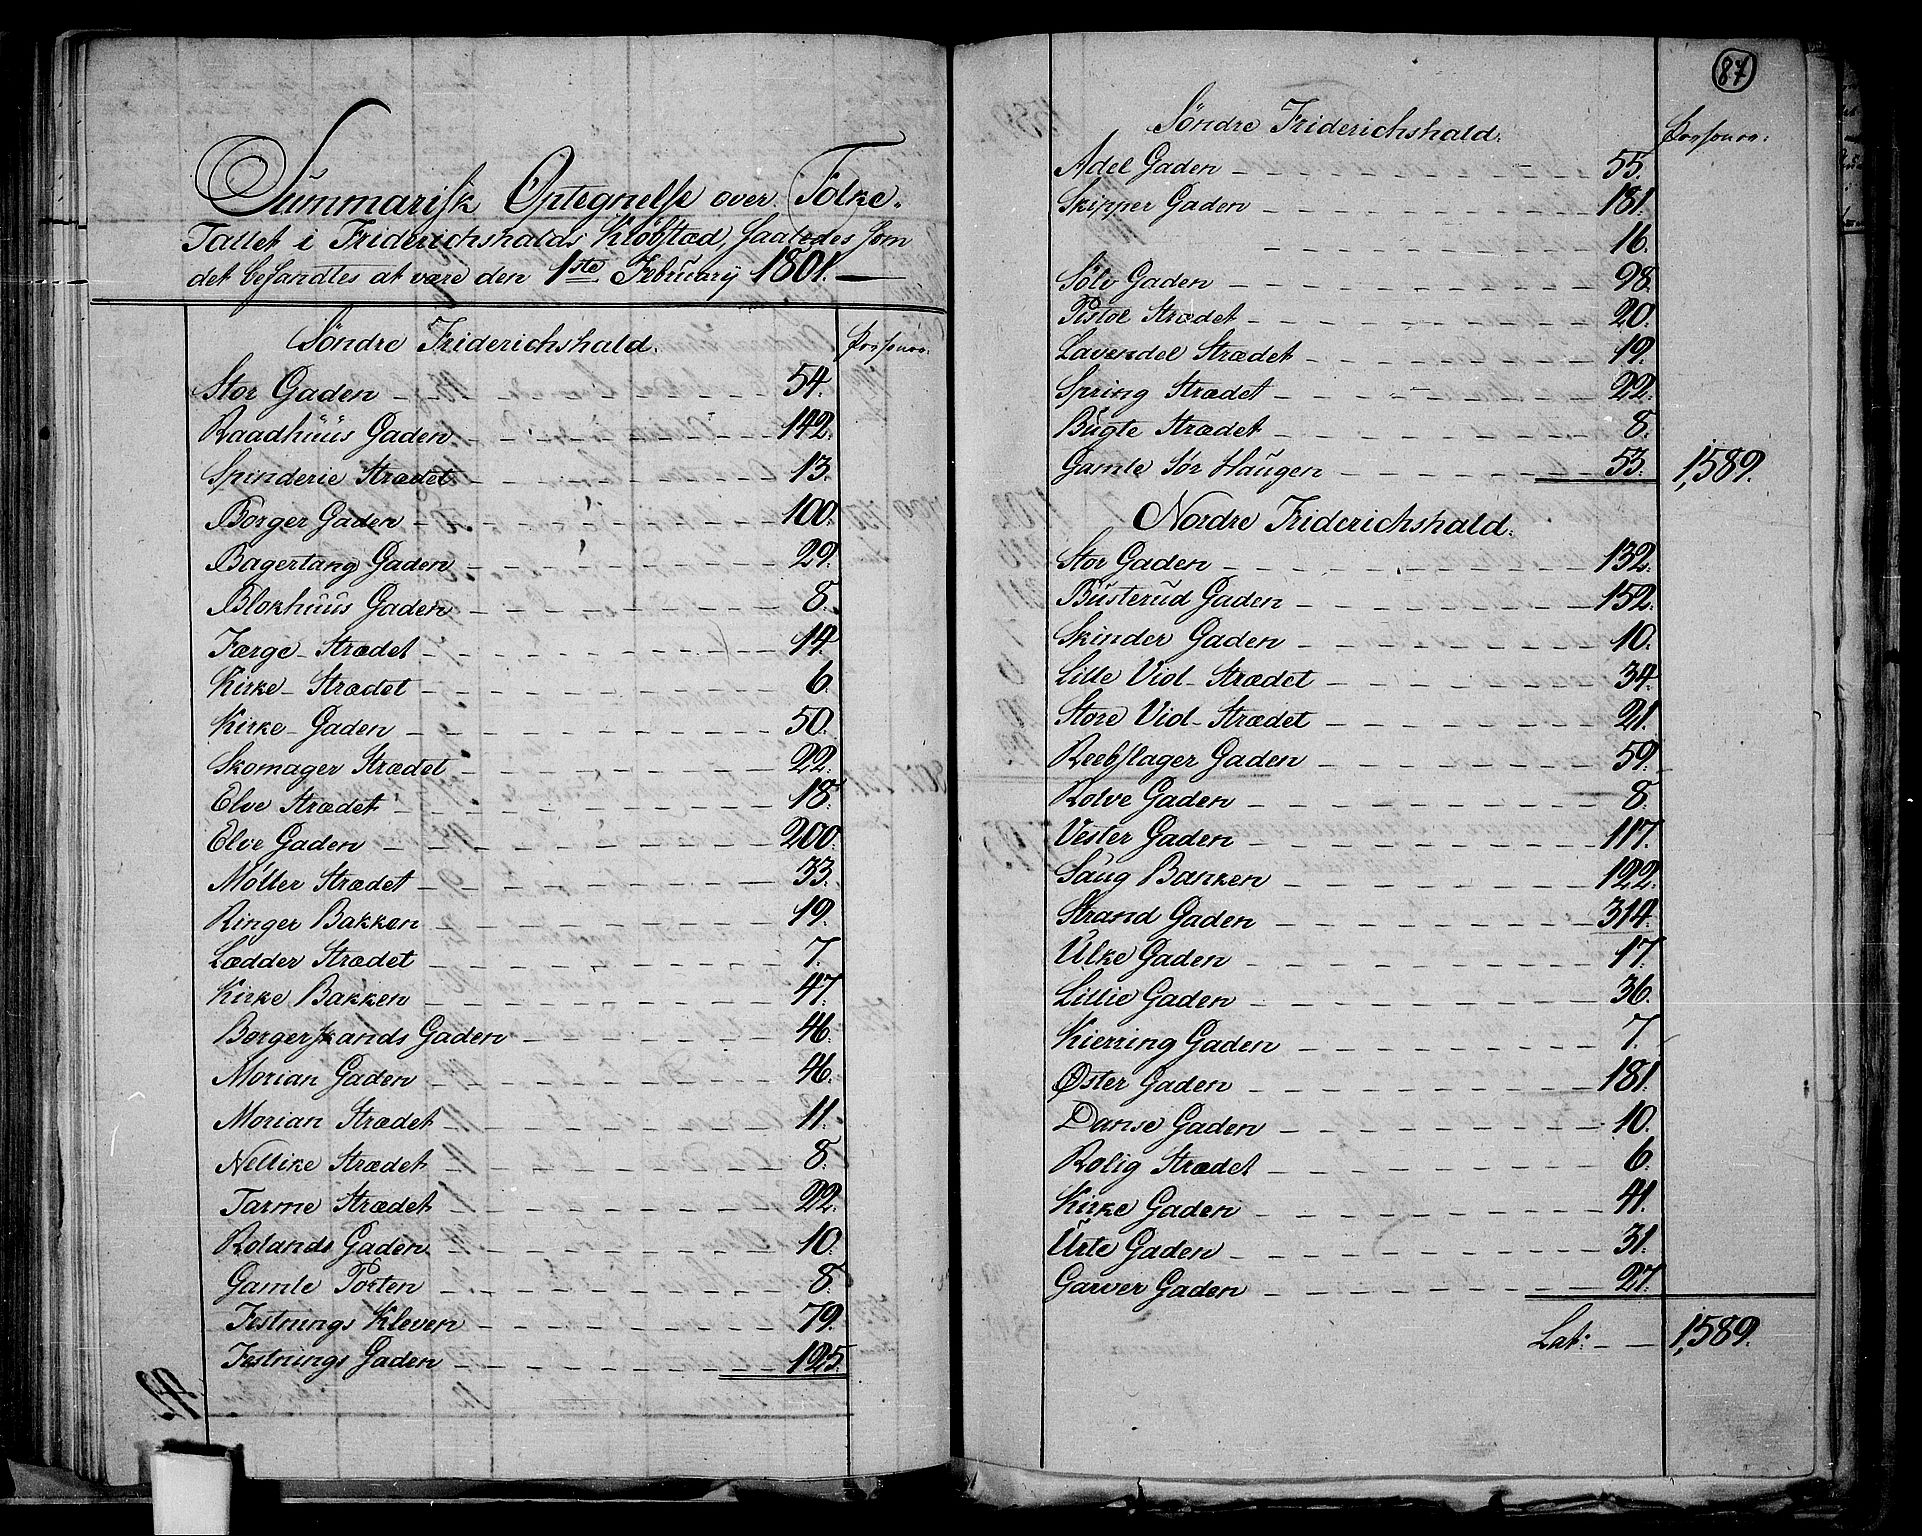 Summarisk Optegnelse over Folke-
Tallet i Friderichshalds Kiøbstad, saaledes som
det befandtes at være den 1ste February 1801.
Søndre Friderichshald. Personer.
Stor Gaden 54.
Raadhuus Gaden 142.
Spinderie Strædet 13.
Borger Gaden 100.
Bagertang Gaden 29.
Blokhuus Gaden 8.
Færge Strædet 14.
Kirke Strædet 6.
Kirke Gaden 50.
Skomager Strædet 22.
Elve Strædet 18.
Elve Gaden 200.
Møller Strædet 33.
Ringer Bakken 19.
Lædder Strædet 7.
Kirke Bakken 47.
Borgerskands Gaden 46.
Morian Gaden 46.
Morian Strædet 11.
Nellike Strædet 8.
Tarme Strædet 22.
Rolands Gaden 10.
Gamle Porten 8.
Festnings Kleven 79.
Festnings Gaden 125.
87
Søndre Friderichshald. Personer.
Adel Gaden 55.
Skipper Gaden 181.
16.
Sølv Gaden 98.
Pistol Strædet 20.
Lavendel Strædet 19.
Spring Strædet 22.
Bügte Strædet 8.
Gamle Sør Haugen 53. 1,589.
Nordre Friderichshald.
Stor Gaden 132.
Busterud Gaden 152.
Skinder Gaden 10.
Lille Vid Strædet 34.
Store Vid Strædet 21.
Reebslager Gaden 59.
Rolve Gaden 8.
Vester Gaden 117.
Saug Banken 122.
Strand Gaden 314.
Ulke Gaden 17.
Lillie Gaden 36.
Kierring Gaden 7.
Øster Gaden 181.
Danse Gaden 10.
Rolig Strædet 6.
Kirke Gaden 41.
Urte Gaden 31.
Garver Gaden 27.
Lat: 1,589.